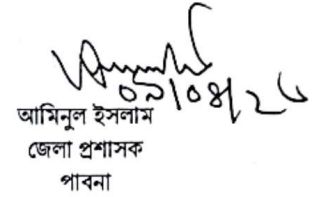 ০৯/০৪/২৬
আমিনুল ইসলাম
জেলা প্রশাসক
পাবনা